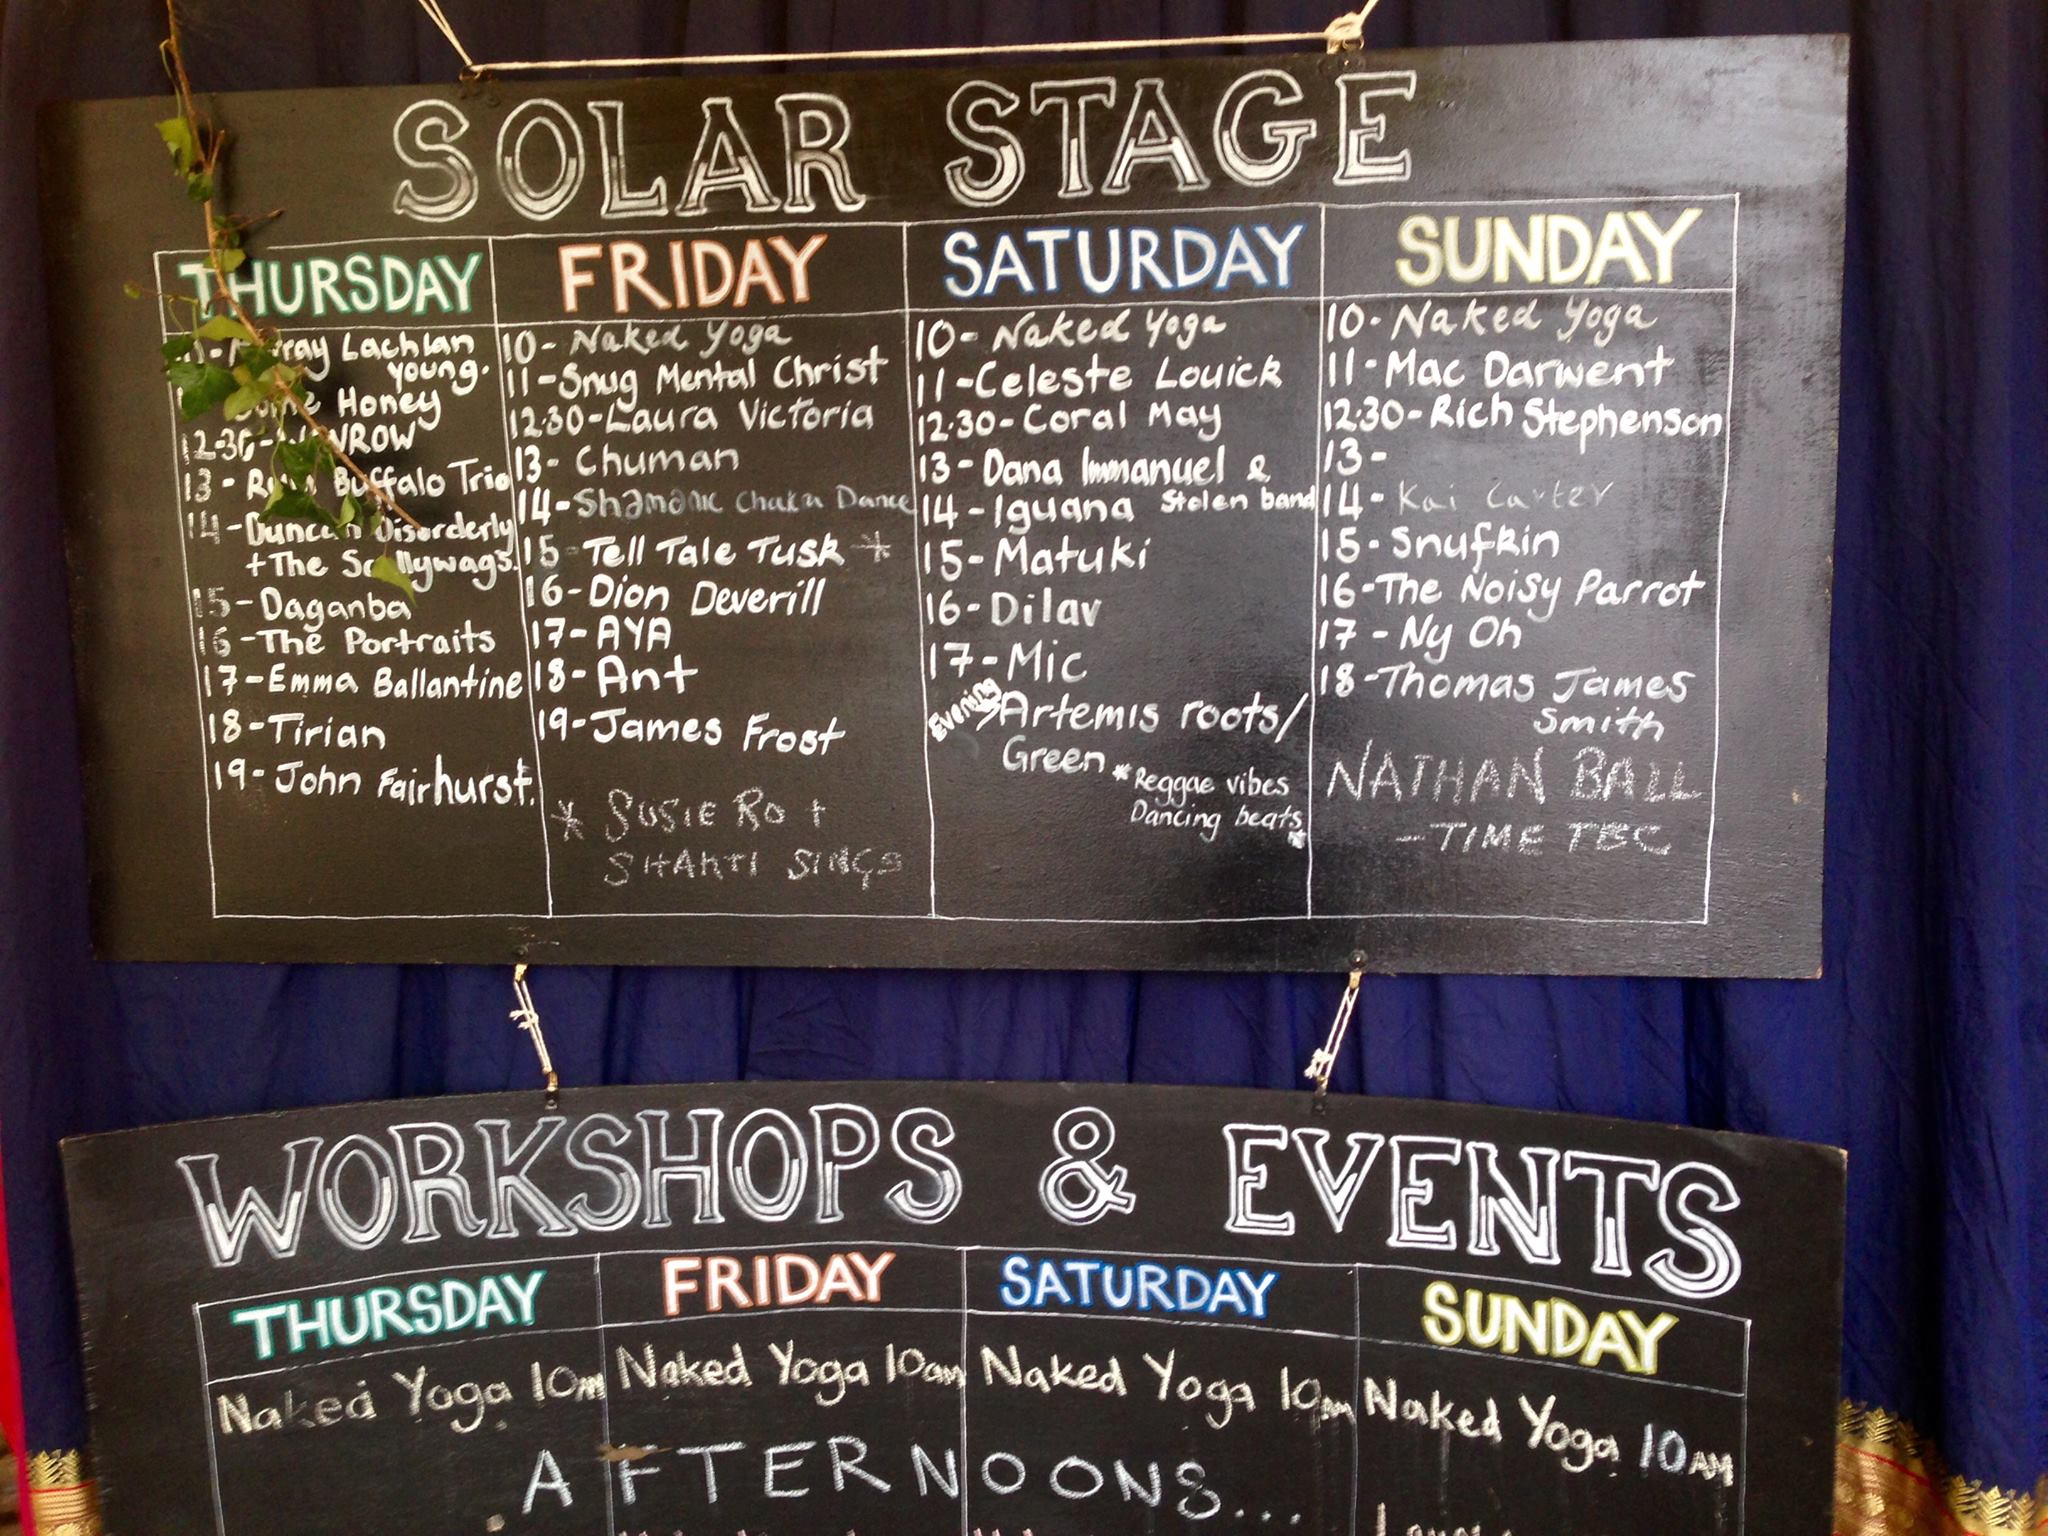 SOLAR STAGE
THURSDAY
Lachlan
young.
Honey
12.30-
13- Buffalo Trio
14-Duncan Disorderly
+The Scallywags.
15-Daganba
16-The Portraits
17-Emma Ballantine
18-Tirian
19-John Fairhurst.
FRIDAY
10- Naked Yoga
11-Snug Mental Christ
12.30-Laura Victoria
13- Chuman
14- Chakra Dance
15-Tell Tale Tusk *
16-Dion Deverill
17-AYA
18-Ant
19-James Frost
* SUSIE RO +
SHAKTI SINGS
SATURDAY
10- Naked Yoga
11-Celeste Louick
12.30-Coral May
13-Dana Immanuel &
14-Iguana Stolen band
15-Matuki
16-Dilav
17-Mic
Evening Artemis roots/
Green *Reggae vibes
Dancing beats*
SUNDAY
10- Naked Yoga
11-Mac Darwent
12.30-Rich Stephenson
13-
14- Kai Carter
15-Snufkin
16-The Noisy Parrot
17-Ny Oh
18-Thomas James
Smith
NATHAN BALL
-TIME TBC
WORKSHOPS & EVENTS
THURSDAY FRIDAY SATURDAY SUNDAY
Naked Yoga 10am Naked Yoga 10am Naked Yoga 10am Naked Yoga 10AM
.AFTERNOONS...